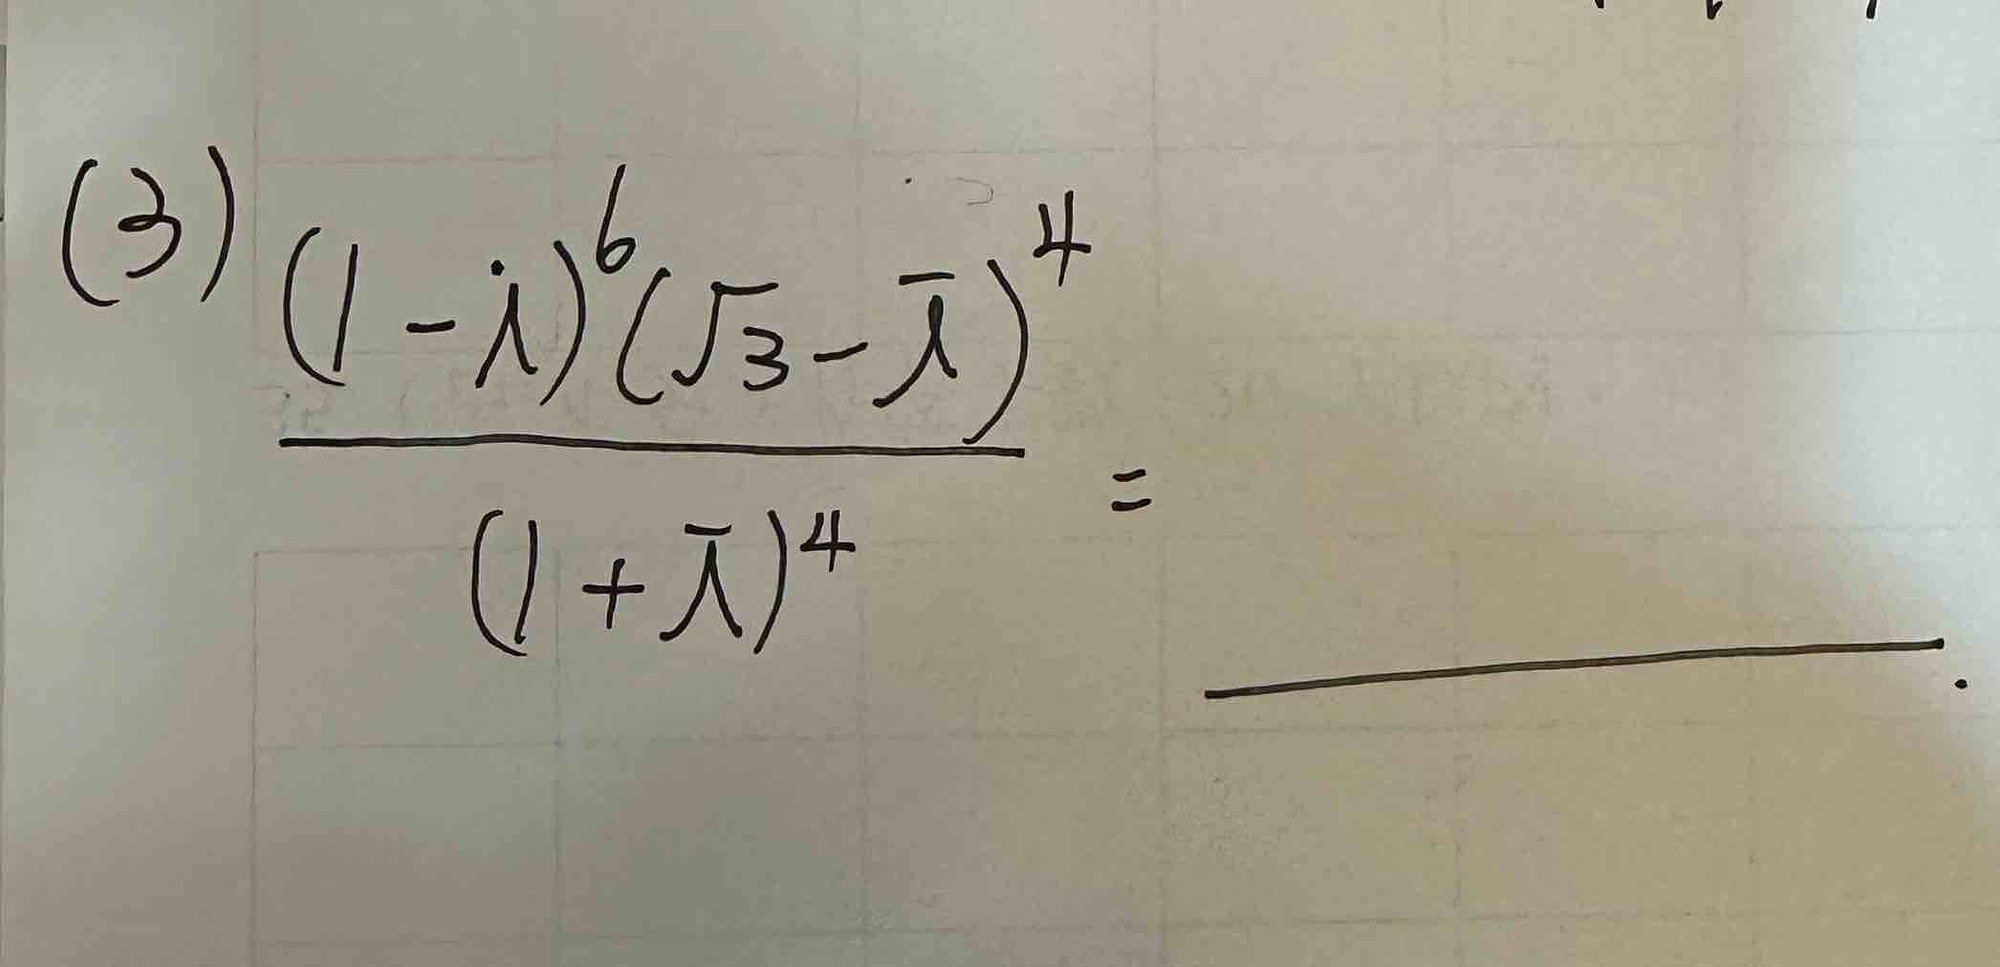 (3) (1-i)⁶(√3-i)⁴
(1+i)⁴
=
.